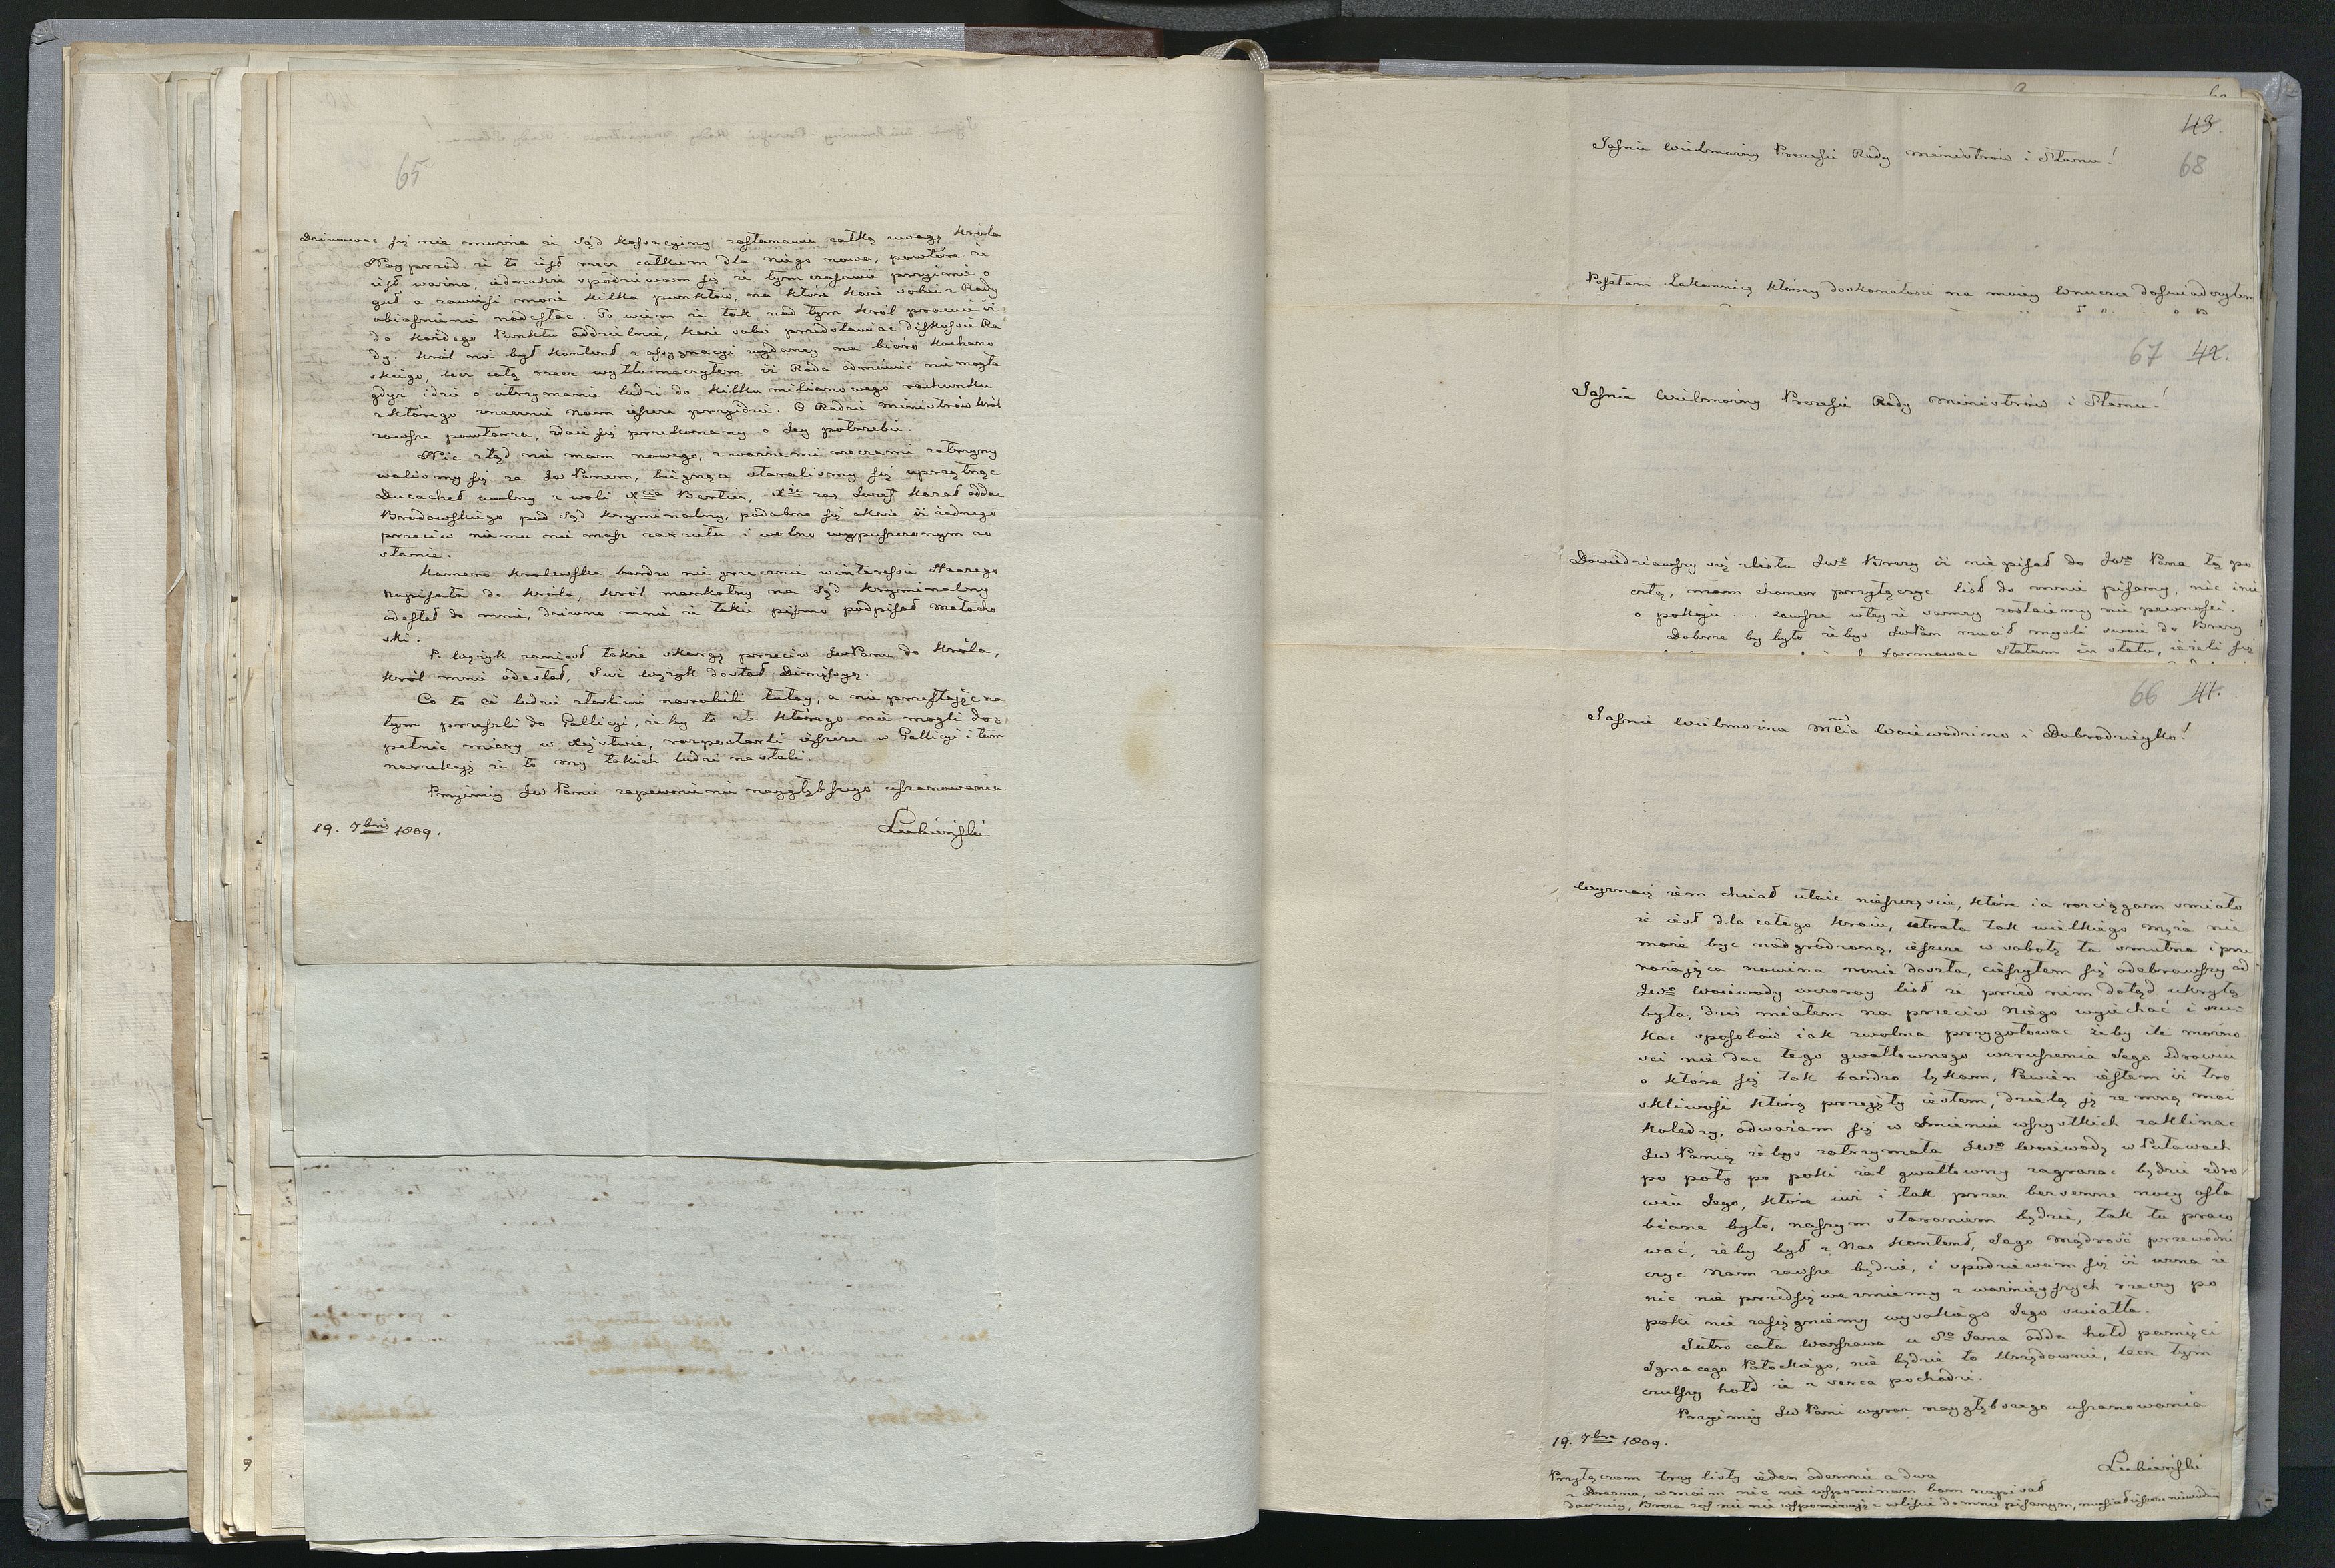 65
Dziwować się nie można że Sąd Kassacyiny zastanawia całką uwagę Króla
Nayprzód że to iest rzecz całkiem dla niego nowa, powtóre że
iest ważna, iednakże spodziewam się że tymczasowie przyimie o
guł a zawiesi może kilka punktów, na które każe sobie z Rady
obiaśnienie nadesłać. To wiem że tak nad tym Król pracuie iż
do każdego Punktu oddzielnie, każe sobie przedstawiać diskussie Ra
dy. Król nie był kontent z assygnacyi wydaney na bióro Kochano
skiego, lecz całą rzecz wytłumaczyłem iż Rada odmówić nie mogła
gdyż idzie o utrzymanie ludzi do kilku milionowego rachunku
z którego znacznie nam ieszcze przyidzie. O Radzie Ministrów Król
zawsze powtarza, zdaie się przekonany o Jey potrzebie.
Nic ztąd nie mam nowego, z ważnemi rzeczami zatrzymy
walismy się za JW Panem, bieżące staralismy się uprzątnąć
Ducachet wolny z woli Xcia Bertier, Xże zas Jozef kazał oddać
Brodowskiego pod Sąd kryminalny, podobno się okaże iż żadnego
przeciw niemu nie masz zarzutu i wolno wypuszczonym zo
stanie.
Kamera Krolewska bardzo nie grzecznie w interessie Haarego
napisała do Króla, Król markotny na Sąd kryminalny
odesłał do mnie, dziwno mnie że takie pismo podpisał Matacho
ski.
P. Wężyk zaniosł takie skargę przeciw JWPanu do Króla,
Król mnie odesłał, Iuż Wężyk dostał Dimissyę.
Co to ci ludzie złosliwi narobili tutay, a nie przestaiąc na
tym przeszli do Gallicyi, żeby to złe którego nie mogli do=
pełnić miary w Xięstwie, rozpostarli ieszcze w Gallicyi i tam
narzekaią że to my takich ludzi nasłali.
Przyimiy JW Panie zapewnienie naygłębszego uszanowania
19. 7bris 1809.
Lubieński
43.
68
Jaśnie Wielmożny Prezesie Rady Ministrów i Stanu!
Posełam Zakonnicę którey doskonałości na moiey Wnuczce doświadczyłem
67 42.
Jaśnie Wielmożny Prezesie Rady Ministrów i Stanu!
Dowiedziawszy się z listu JWo Brezy iż nie pisał do JWo Pana tą po
cztą, mam chonor przyłączyć list do mnie pisany, nic inie
o pokoju .... zawsze w tey że samey zostaiemy nie pewności.
Dobrze by było żebyś JWPan rzucił mysli swoie do Brezy
formować Statum in statu, ieżeli się
66 41.
Jaśnie Wielmożna Mcia Woiewodzino i Dobrodzieyko!
Wyznaię żem chciał utaić nieszczęscie, które ia rozciągam smiało
że iest dla całego Kraiu, utrata tak wielkiego męża nie
może być nadgrodzoną, ieszcze w sobotę ta smutna i prze
rażaiąca nowina mnie doszła, cieszyłem się odebrawszy od
JWo Woiewody wczoray list że przed nim dotąd ukrytą
była, dziś miałem na przeciw Niego wyiechać i szu=
kać sposobów iak zwolna przygotować żeby ile możno
sci nie dać tego gwałtownego wzruszenia Jego zdrowiu
o które się tak bardzo lękam, Pewien iestem iż tro
skliwość którą przeięty iestem, dzielą ią ze mną moi
koledzy, odważam się w Imieniu wszystkich zaklinać
JW Panią żebyś zatrzymała JWo Woiewodę w Puławach
po poty po poki żal gwałtowny zagrażać będzie zdro
wiu Jego, które iuż i tak przez bezsenne nocy osła
bione było, naszym staraniem będzie, tak tu praco
wać, żeby był z Nas kontent, Jego Mądrość przewodni
czyć Nam zawsze będzie, i spodziewam się iż uzna że
nic nie przedsięwezmiemy z ważnieyszych rzeczy po
poki nie zasięgniemy wysokiego Jego swiatła.
Jutro cała Warszawa u So Jana odda hołd pamięci
Ignacego Potockiego, nie będzie to Urzędownie, lecz tym
czulszy hołd że z serca pochodzi.
Przyimiy JW Pani wyraz naygłębszego uszanowania
19. 7bra 1809.
Lubieński
Przyłączam trzy listy ieden odemnie a dwa
z Drezna, w moim nic nie wspominam bom napisał
dawniey, Breza zaś nic nie wspominaiąc w liście do mnie pisanym, musiał ieszcze niewiedzieć